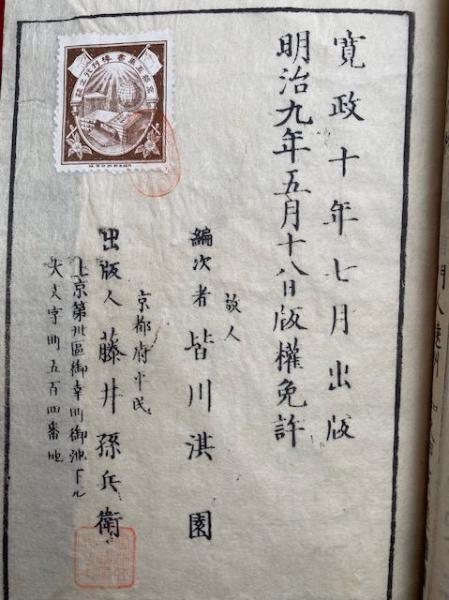 寛政十年七月出版
明治九年五月十八日版權免許
故人
編次者 皆川淇園
京都府平民
出版人 藤井孫兵衛
上京第丗區御幸町御池下ル
大文字町五百四番地